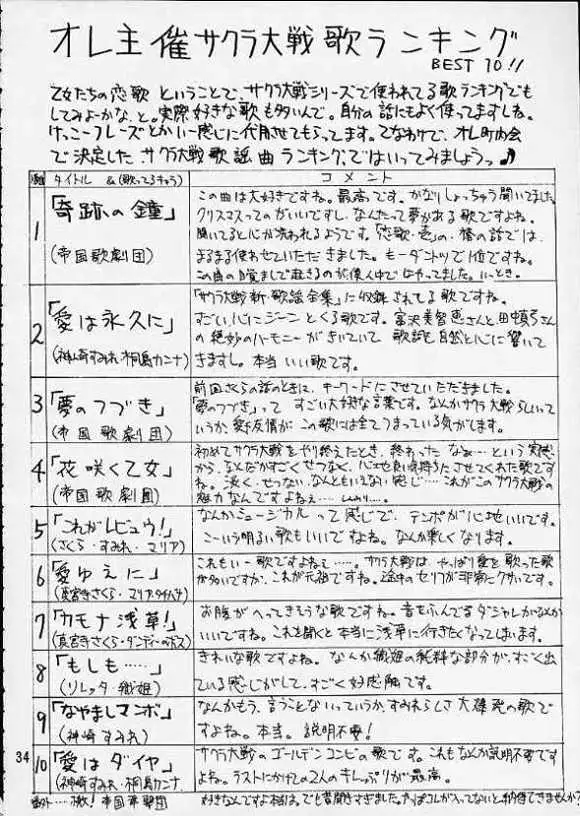 オレ主催サクラ大戦歌ランキング
BEST 10!!
乙女たちの恋歌ということで、サクラ大戦シリーズで使われてる歌ランキングでも
してみよーかな、と。実際好きな歌も多いんで。自分の話にもよく使ってますしね。
けっこーフレーズとかいー感じに代用させてもらってます。てなわけで、オレ町内会
で決定した サクラ大戦歌謡曲ランキング、ではいってみましょうっ♪
タイトル &(歌ってるキャラ)
コメント
1
「奇跡の鐘」
(帝国歌劇団)
この曲は大好きですね。最高です。かなりしょっちゅう聞いてました。
クリスマスってのがいいですし、なんたって夢がある歌ですよね。
聞いてると心が洗われるようです。「恋歌・壱」の、椿の話では、
まるまる使わせていただきました。もーダントツで1位ですね。
2
「愛は永久に」
(神崎すみれ・桐島カンナ)
「サクラ大戦 新・歌謡全集」に収録されてる歌ですね。
すごい、心にジーンとくる歌です。富沢美智恵さんと田中真弓さん
の絶妙のハーモニーがきいていて 歌詞も自然と心に響いて
きますし。本当いい歌です。
3
「夢のつづき」
(帝国歌劇団)
前回さくらの話のときに、キーワードにさせていただきました。
「夢のつづき」って すごい大好きな言葉です。なんかサクラ大戦らしいってい
うか、愛と友情が この歌には全てつまっている気がします。
4
「花咲く乙女」
(帝国歌劇団)
初めてサクラ大戦をやり終えたとき、終わった なぁ…という実感
から、なんだかすごくせつなく、心地良い気持ちにさせてくれた歌です
ね。淡く、せつない、なんともいえない感じ…これがこのサクラ大戦の
魅力なんですよねぇ…
5
「これがレビュウ!」
(さくら・すみれ・マリア)
なんかミュージカルって感じで、テンポが心地いいです。
こーいう明るい歌もいいですよね。なんか楽しくなります。
6
「愛ゆえに」
(真宮寺さくら・マリア・タチバナ)
これもいー歌ですよねぇ……。サクラ大戦は、やっぱり愛を歌った歌
が多いですが、これが元祖ですね。途中のセリフが非常にクサいです。
7
「カモナ浅草!」
(真宮寺さくら・ダンディーのボス)
お腹がへってきそうな歌ですね。音をふんでるダジャレがなかなか
いいですね。これを聞くと本当に浅草に行きたくなってしまいます。
8
「もしも……」
(ソレッタ・織姫)
きれいな歌ですよね。なんか織姫の純粋な部分が、すごく出
ている感じがして、すごく好感触です。
9
「なやましマンボ」
(神崎すみれ)
なんかもう、言うことないっていうか、すみれらしさ大爆発の歌で
すよね。本当。説明不要!
34
10
「愛はダイヤ」
(神崎すみれ・桐島カンナ)
サクラ大戦のゴールデンコンビの歌です。これもなんか説明不要です
よね。ラストにかけての2人のキレっぷりが最高。
番外……檄!帝国華撃団